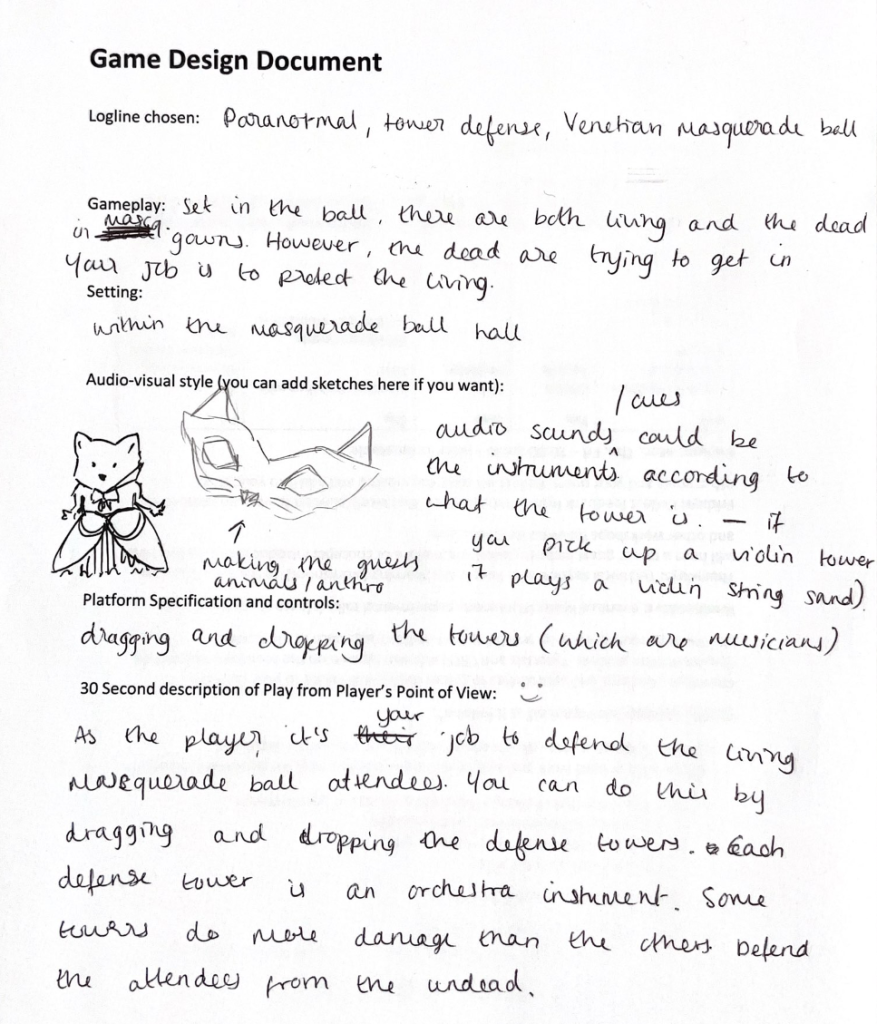 Game Design Document
Logline chosen: Paranormal, tower defense, Venetian masquerade ball
Gameplay: Set in the ball, there are both living and the dead
in gowns. However, the dead are trying to get in
Your job is to protect the living.
Setting:
within the masquerade ball hall
Audio-visual style (you can add sketches here if you want):
/ cues
audio sounds could be
the instruments according to
what the tower is. — if
you pick up a violin tower
it plays a violin string sand).
making the guests
animals/anthro
Platform Specification and controls:
dragging and dropping the towers (which are musicians)
30 Second description of Play from Player's Point of View:
your
As the player, it's their job to defend the living
masquerade ball attendees. You can do this by
dragging and dropping the defense towers. Each
defense tower is an orchestra instument. Some
towers do more damage than the others Defend
the attendees from the undead.